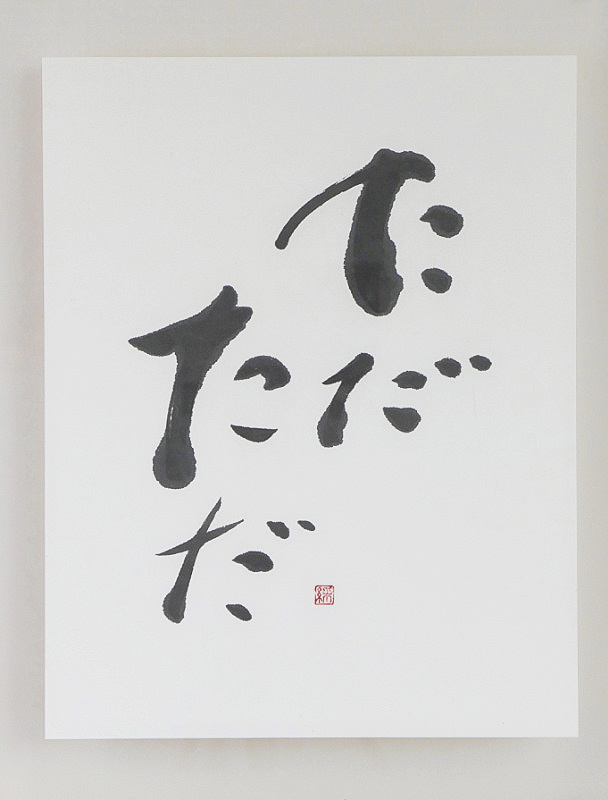 ただ
ただ